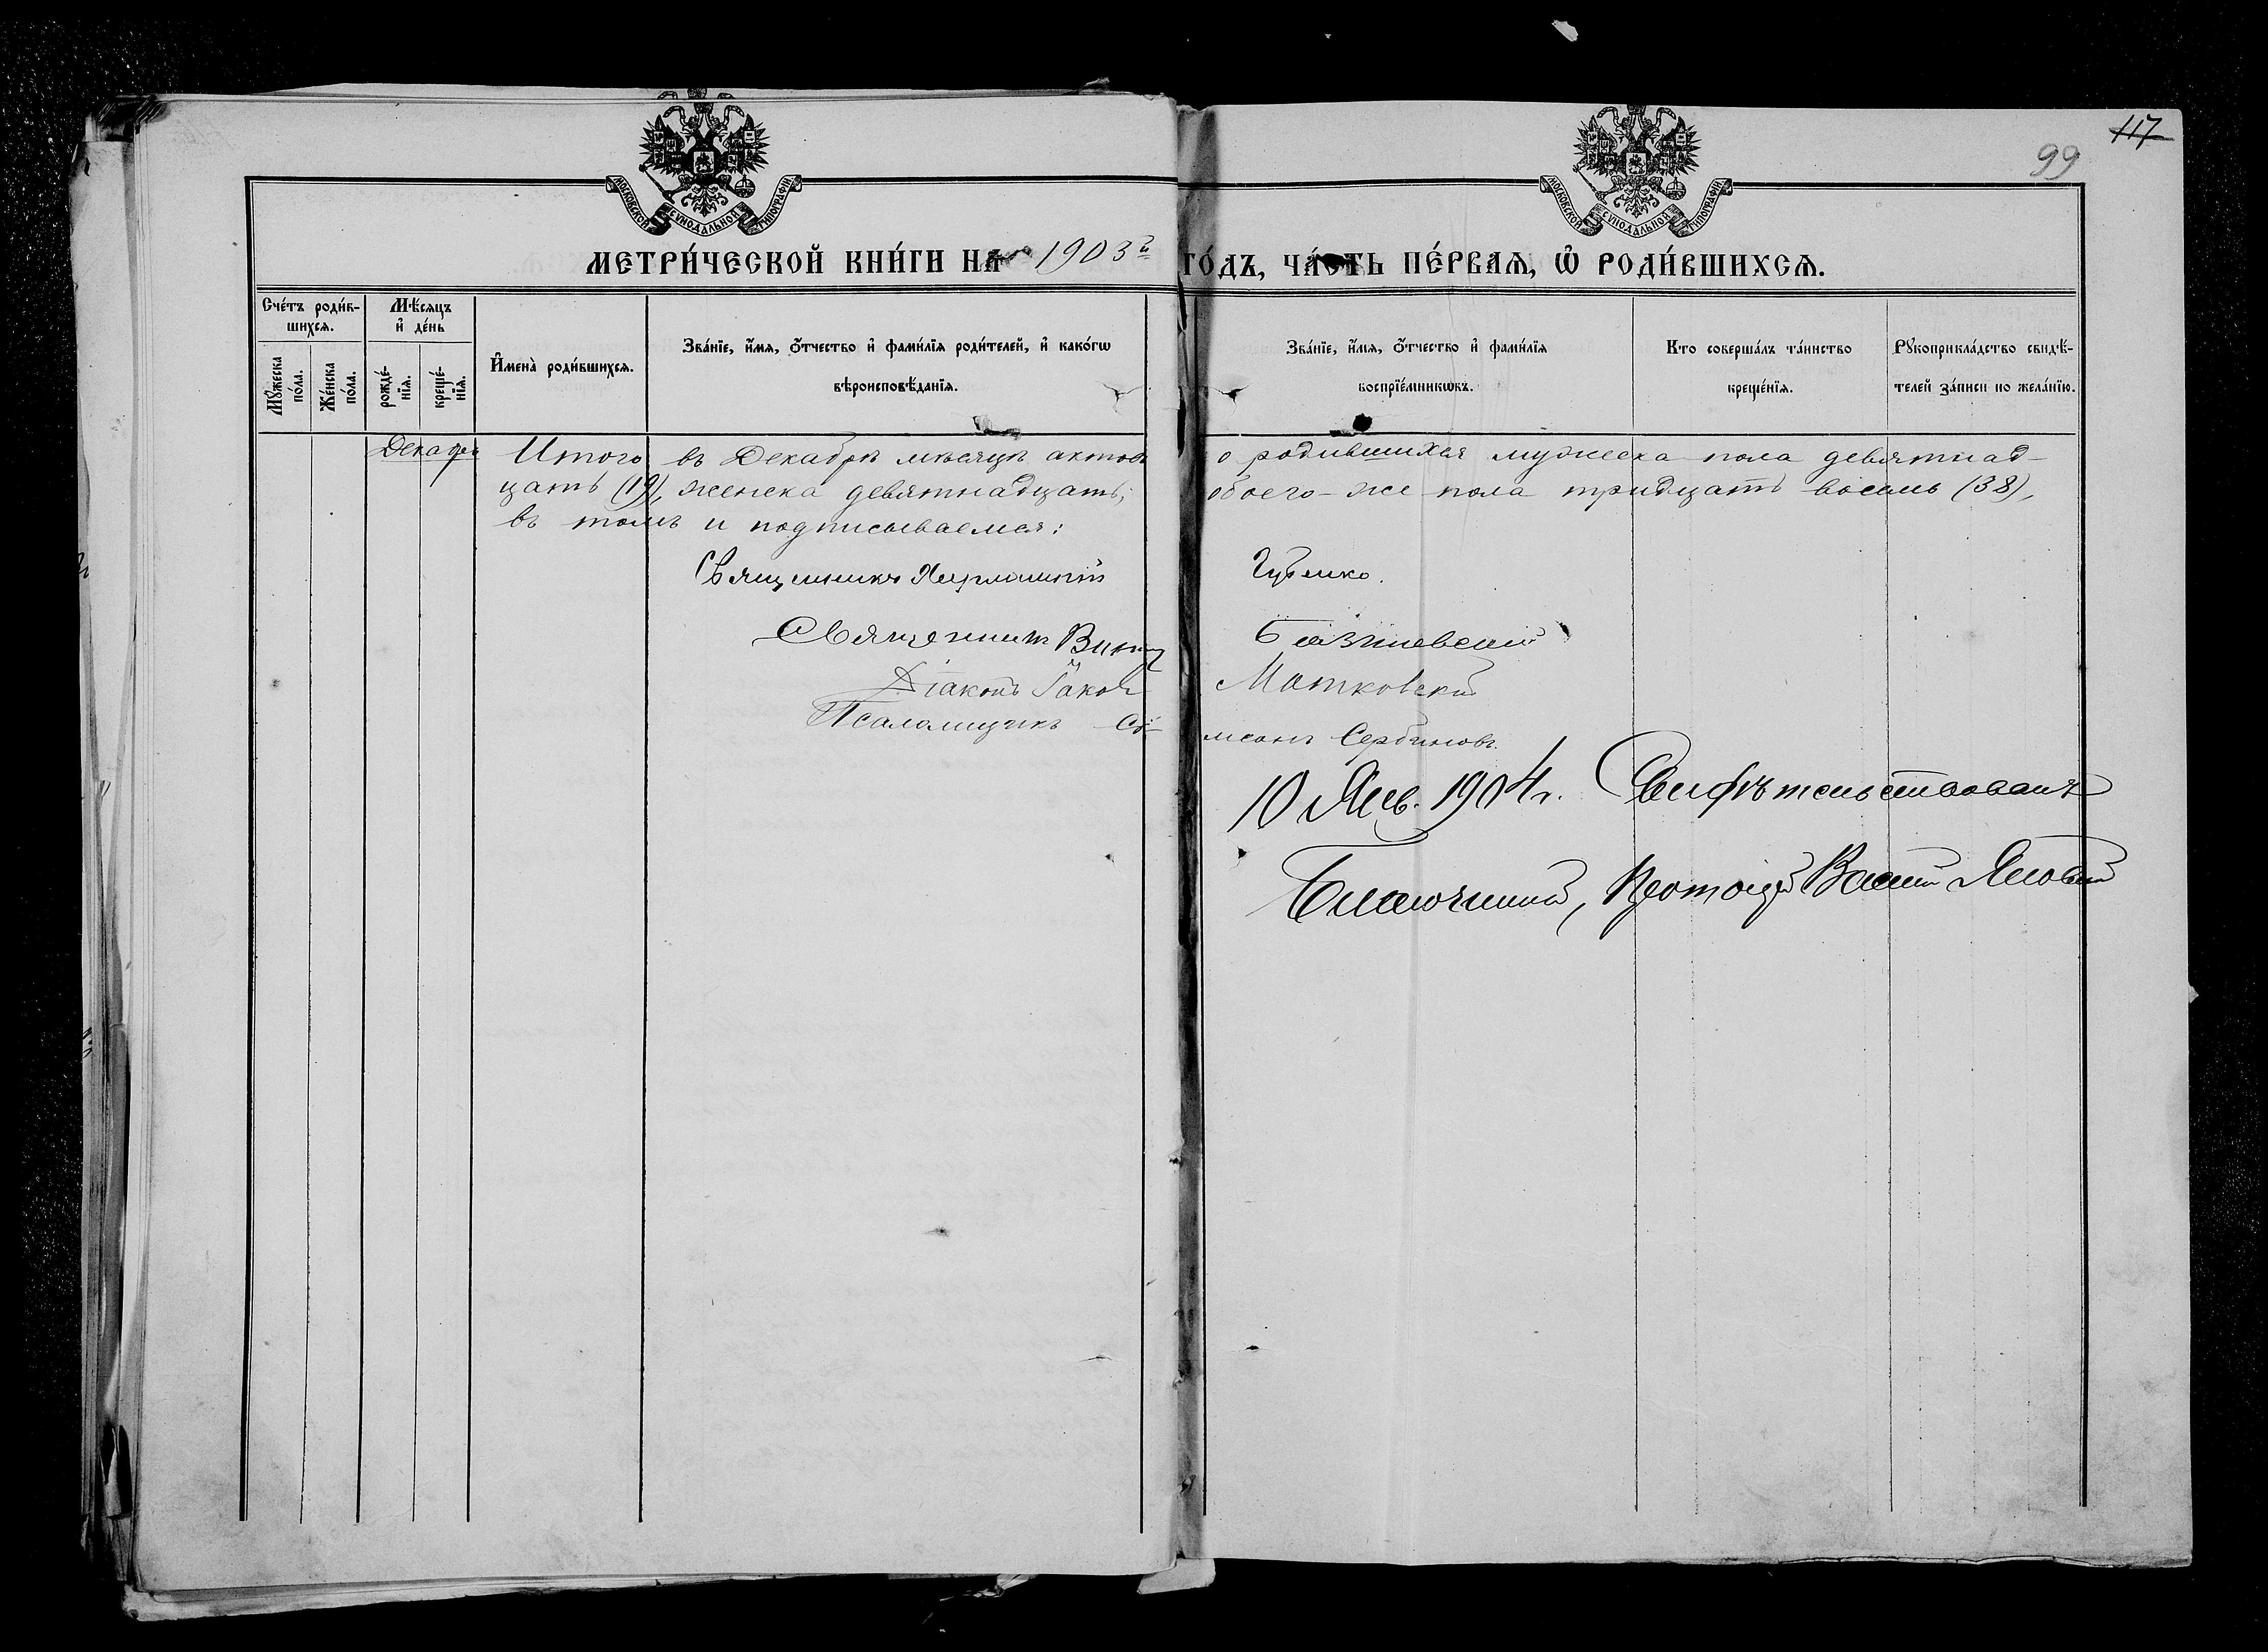 117
99
МОСКОВСКОЙ СѴНОДАЛЬНОЙ ТИПОГРАФІИ
МОСКОВСКОЙ СѴНОДАЛЬНОЙ ТИПОГРАФІИ
МЕТРИ́ЧЕСКОЙ КНИ́ГИ НА 1903й ГО́ДЪ, ЧА́СТЬ ПЕ́РВАЯ, Ѽ РОДИ́ВШИХСѦ.
Сче́тъ роди́в-
шихсѧ.
Мѣ́сѧцъ
и҆ де́нь
Мꙋ́жеска по́ла.
Же́нска по́ла.
рожде́-
нїѧ.
креще́-
нїѧ.
И҆мена̀ роди́вшихсѧ.
Зва́нїе, и҆́мѧ, ѻ҆́тчество и҆ фами́лїѧ роди́телей, и҆ како́гѡ
вѣроисповѣ́данїѧ.
Зва́нїе, и҆́мѧ, ѻ҆́тчество и҆ фами́лїѧ
воспрїе́мникѡвъ.
Кто соверша́лъ та́инство
креще́нїѧ.
Рꙋкоприкла́дство свидѣ́-
телей за́писи по жела́нїю.
Декабрь
Итого въ Декабрѣ мѣсяцѣ актовъ о родившихся мужеска пола девятнад-
цать (19), женска девятнадцать, обоего-же пола тридцать восемь (38),
въ томъ и подписываемся:
Священникъ Губенко.
Священник
Діаконъ Іаковъ Матковскій
Псаломщикъ Самсонъ Сербиновъ.
10 Янв. 1904 г. Свидѣтельствовалъ
Благочинный, Протоіерей